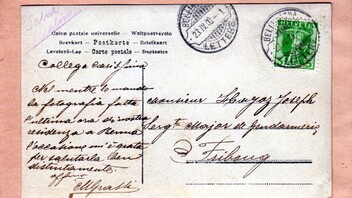 Union postale universelle — Weltpostverein
Brevkort - Postkarte - Briefkaart
Levelezö-Lap - Carte postale - Dopisnice
BELLINZONA
LETTERE
HELVETIA
Collega carissima
Nel mentre le mando
la fotografia fatta
l'ultima ora di nostra
residenza a Berna
l'occasione m'è grata
per salutarla ben
distintamente
Monsieur Hayoz Joseph
Sergte Major de Gendarmerie
Fribourg